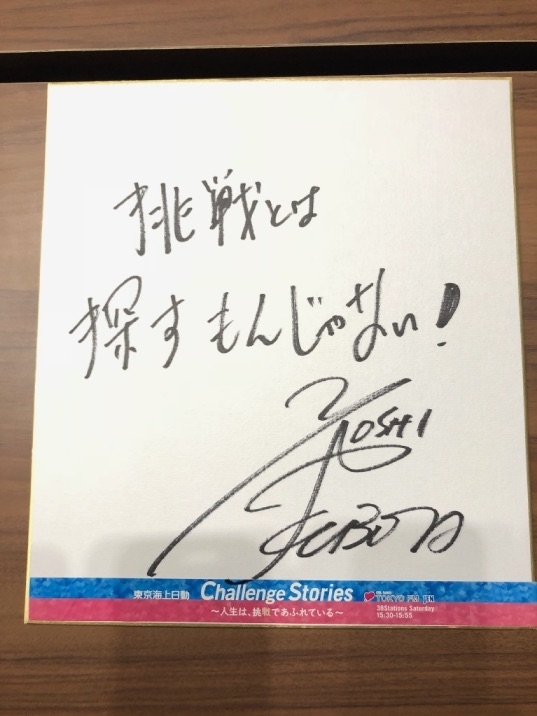 挑戦とは
探すもんじゃない!
YOSHI
KUBOTA
東京海上日動 Challenge Stories
～人生は、挑戦であふれている～
TOKYO FM
38Stations Saturday
15:30-15:55